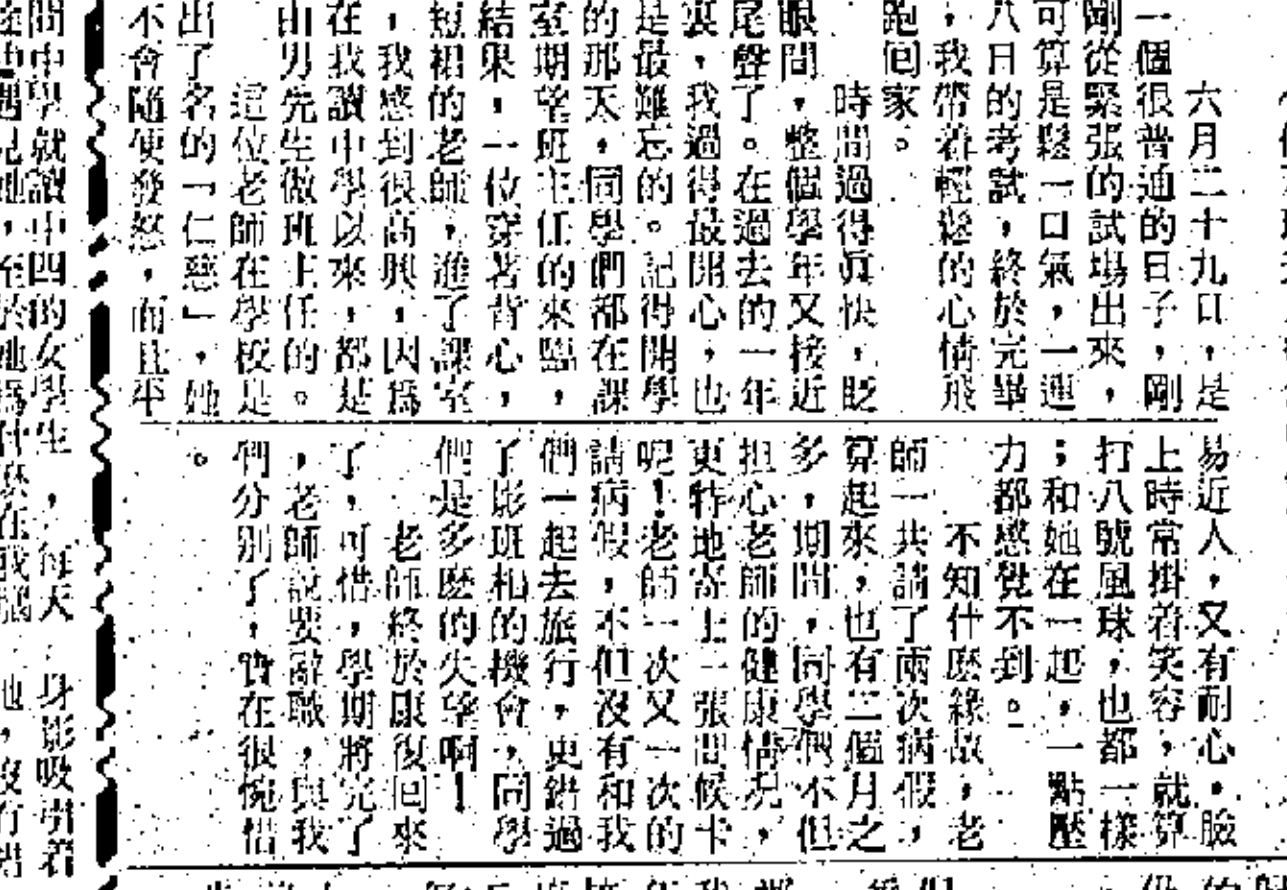 六月二十九日，是
一個很普通的日子，剛
剛從緊張的試場出來，
可算是鬆一口氣，一連
八日的考試，終於完畢
，我帶着輕鬆的心情飛
跑回家。
時間過得眞快，眨
眼間，整個學年又接近
尾聲了。在過去的一年
裏，我過得最開心，也
是最難忘的。記得開學
的那天，同學們都在課
室期望班主任的來臨，
結果，一位穿著背心，
短裙的老師，進了課室
，我感到很高興，因爲
在我讀中學以來，都是
由男先生做班主任的。
這位老師在學校是
出了名的「仁慈」，她
不會隨便發怒，而且平
易近人，又有耐心。臉
上時常掛着笑容，就算
打八號風球，也都一樣
；和她在一起，一點壓
力都感覺不到。
不知什麽緣故，老
師一共請了兩次病假，
算起來，也有二個月之
多，期間，同學們不但
担心老師的健康情況，
更特地寄上一張問候卡
呢！老師一次又一次的
請病假，不但沒有和我
們一起去旅行，更錯過
了影班相的機會，同學
們是多麽的失望啊！
老師終於康復回來
了，可惜，學期將完了
，老師說要辭職，與我
們分別了，實在很惋惜
。
間中學就讀中四的女學生，每天
身影吸引着